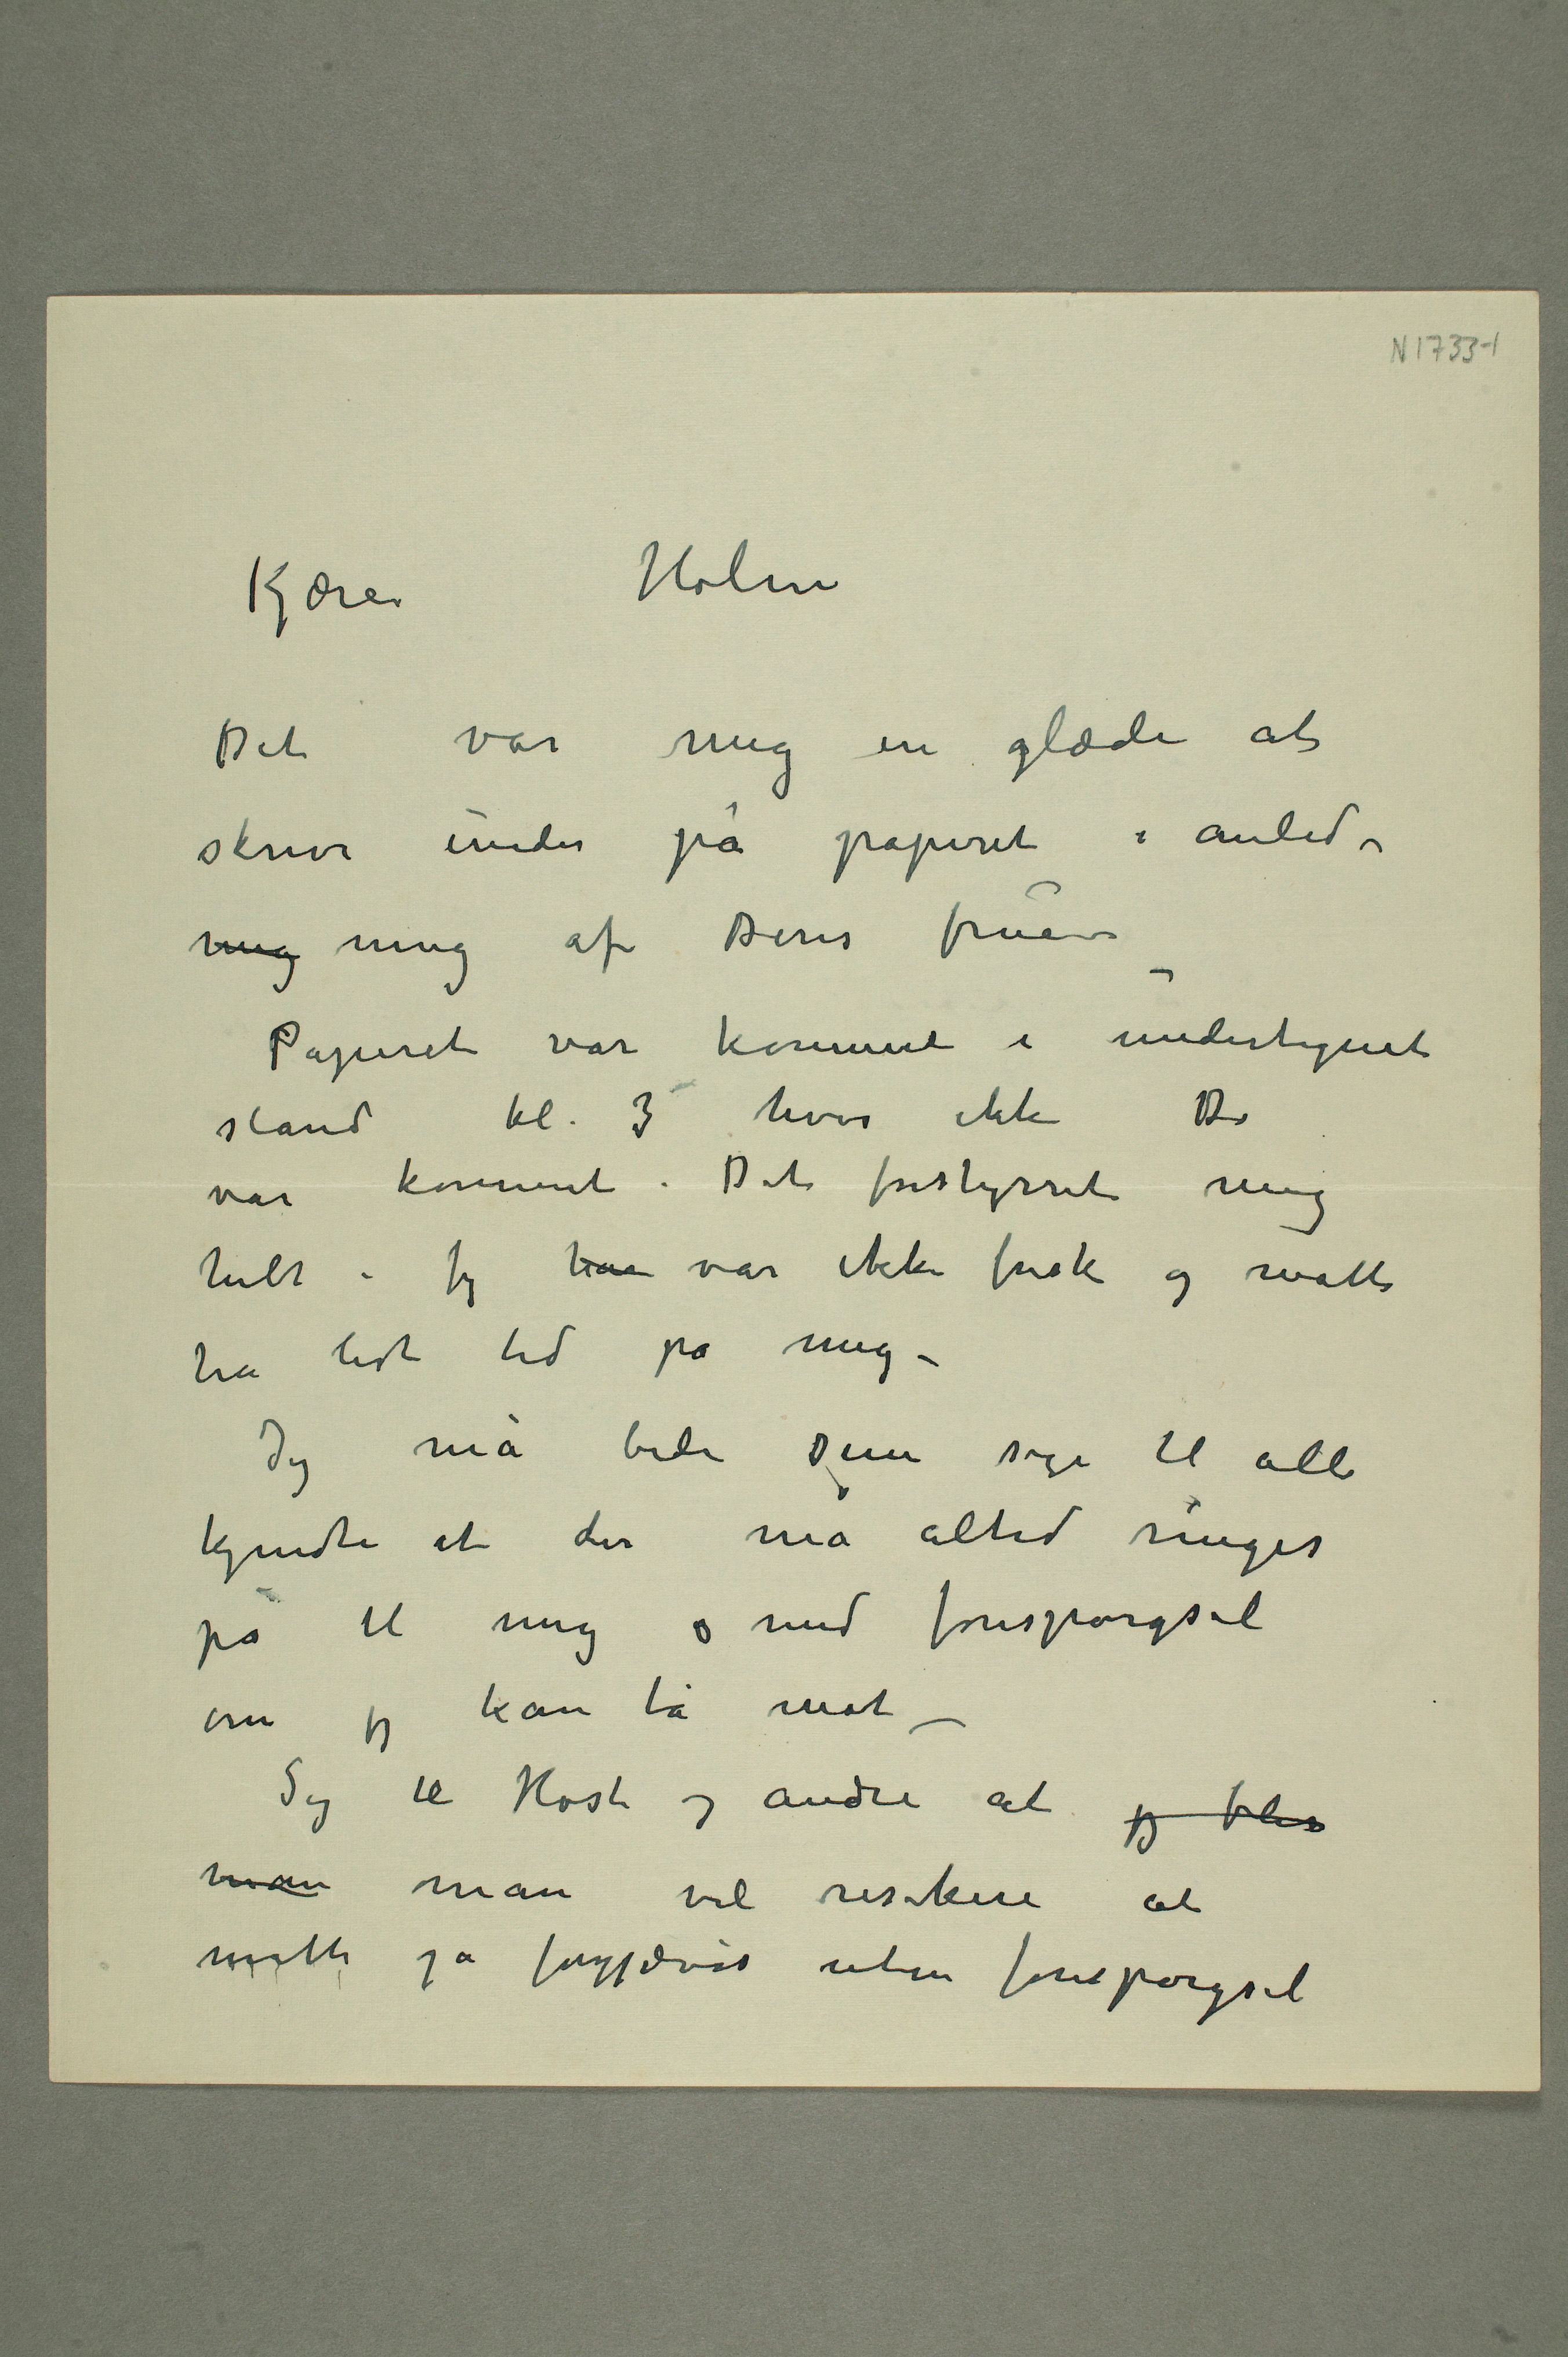 N 1733-1
Kjære Holm
Det var mig en glæde at
skrive under på papiret i anled-
nig ning af Deres frue –
Papiret var kommet i undertegnet
stand kl. 3 hvis ikke De
var kommet. Det forstyrret mig
helt – Jeg har var ikke frisk og måtte
ha lidt tid på mig –
Jeg må bede Dem sige til alle
kjendte at der må altid ringes
på til mig o med forespørgsel
om jeg kan ta mot –
Sig til Høst og andre at jeg blir
man man vil resikere at
måtte gå forgjæves uten forespørgsel